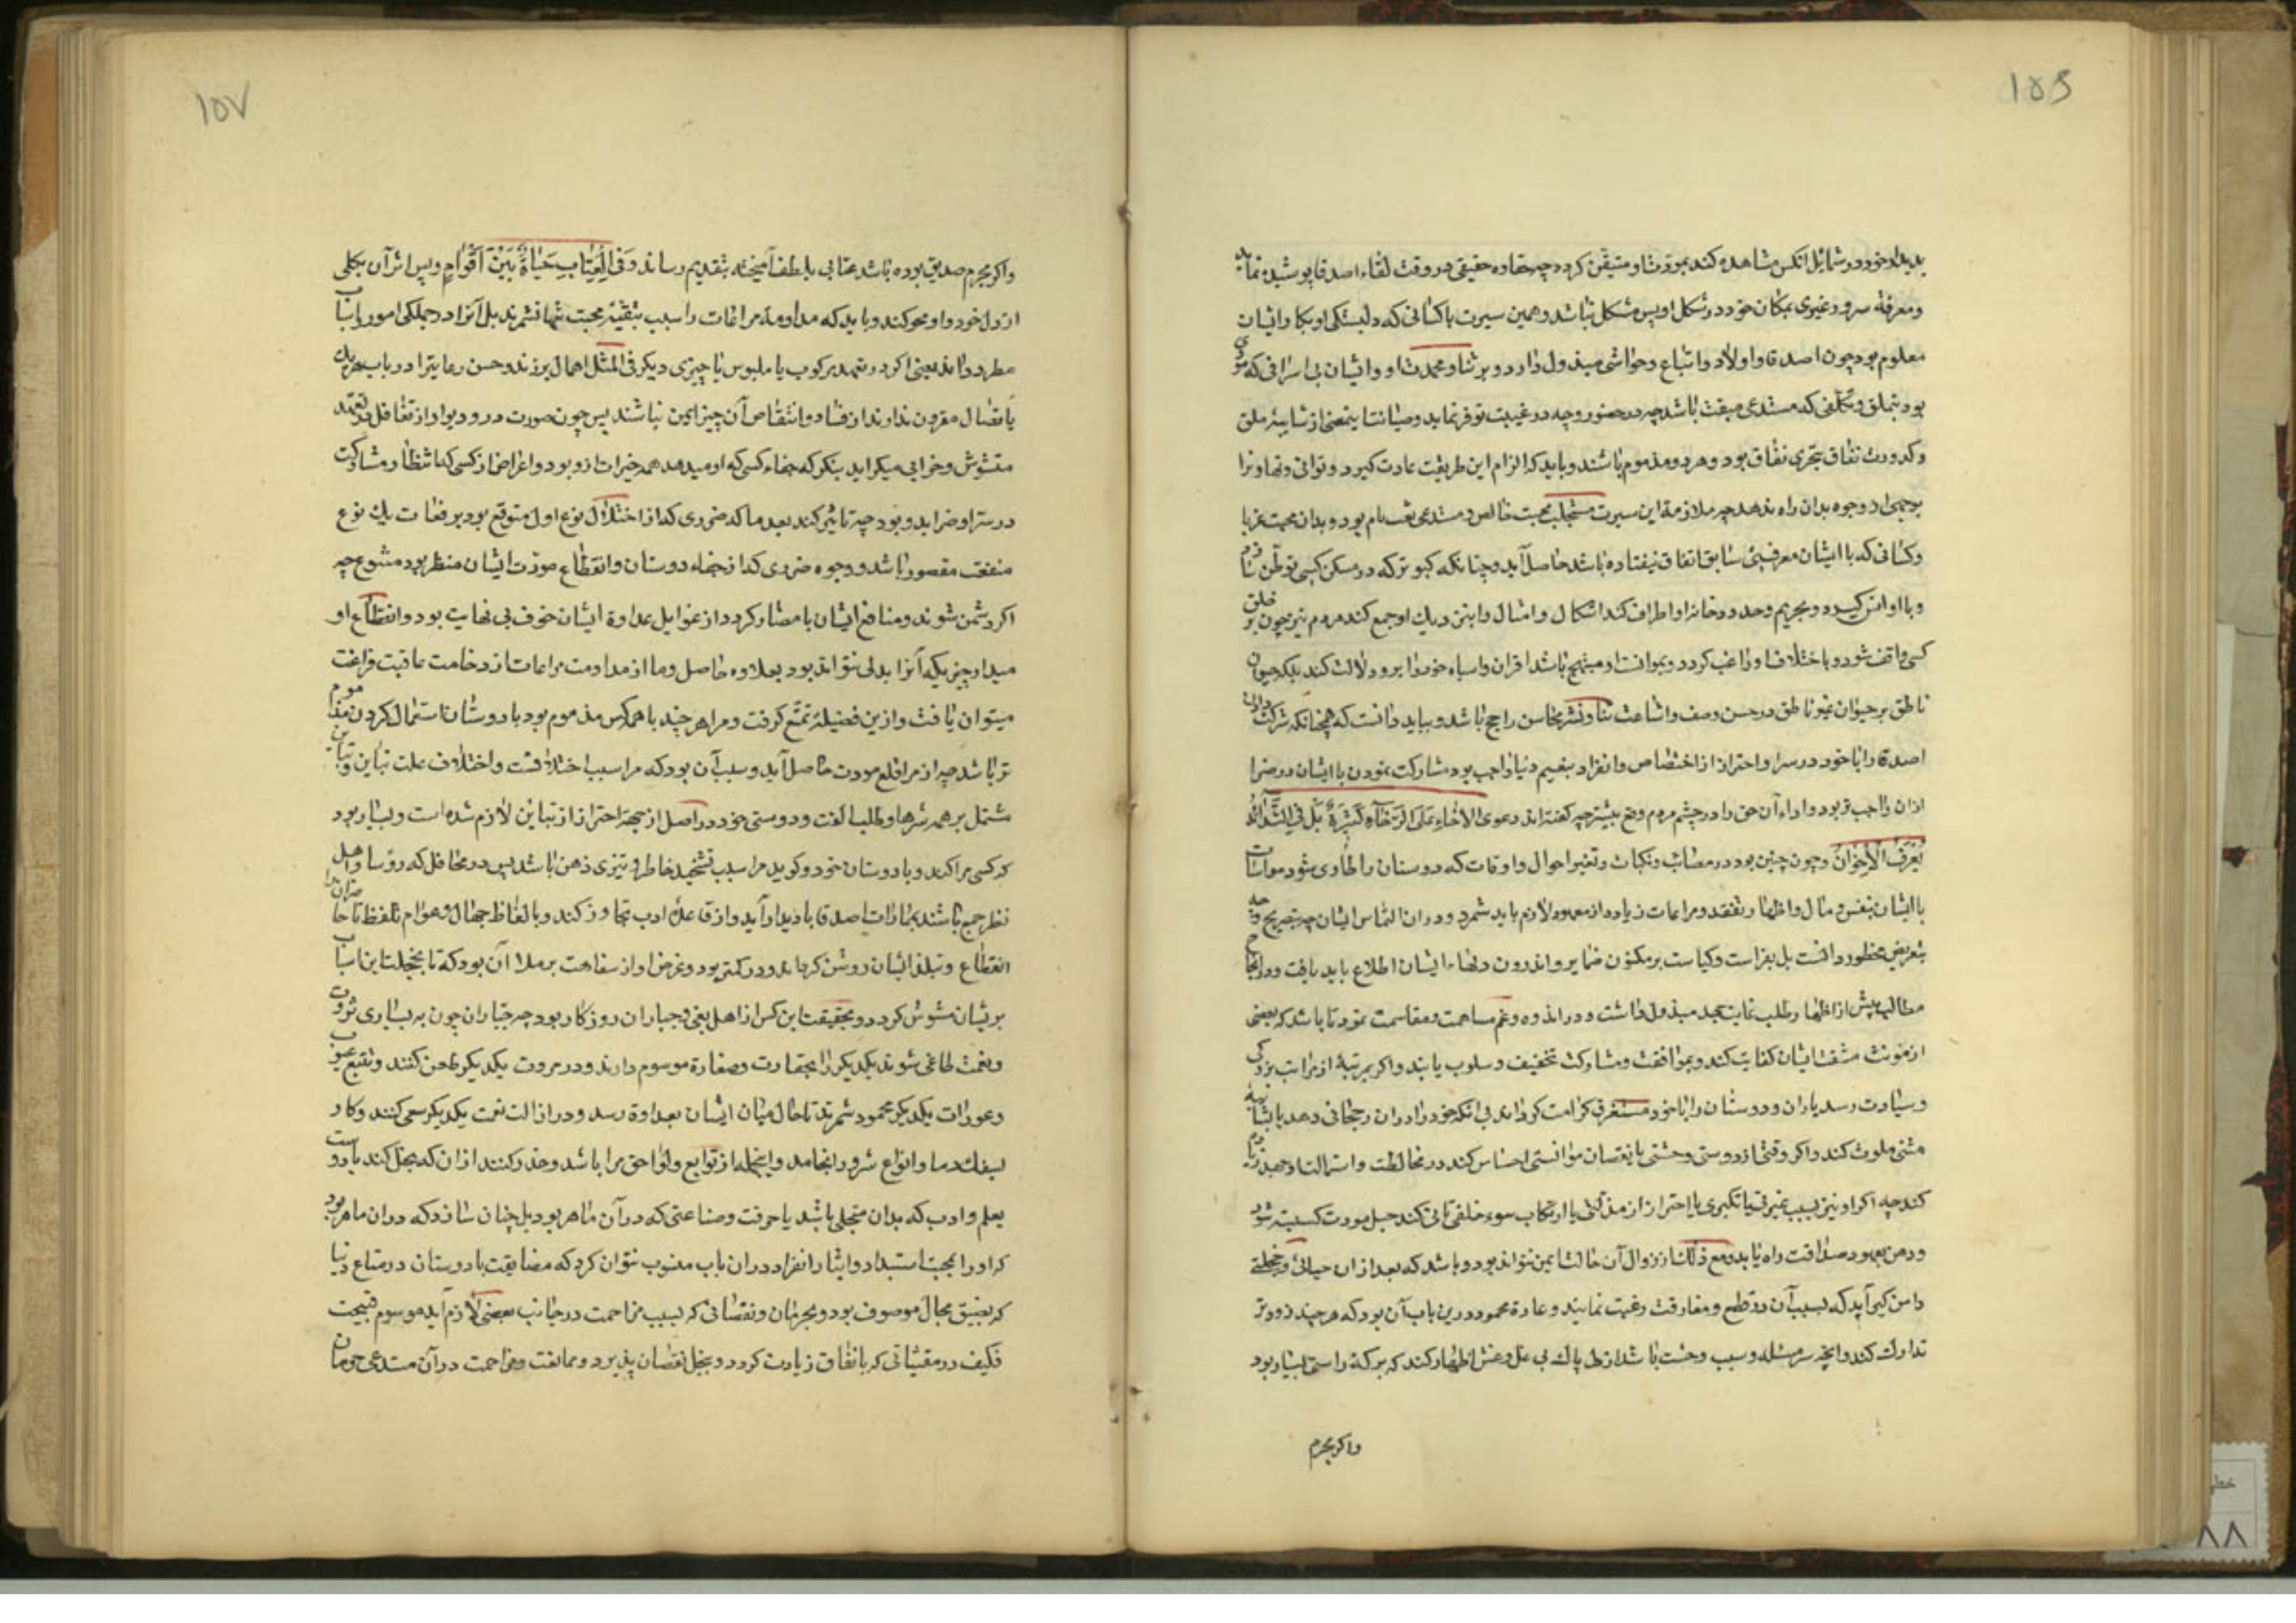 ۱۵۶
بدیدار خود در شمائل انکس مشاهده کند بمودت او متیقن کردد چه حفاوه حقیقی در وقت لقاء اصدقا پوشیده نماند
ومعرفة سرور غیری بمکان خود در شکل او پس مشکل نباشد وهمین سیرت با کسانی که دلبستکی او بکار ایشان
معلوم بود چون اصدقا و اولاد و اتباع و حواشی مبذول دارد و بر ثنا و محمدت او و ایشان بی اسرافی که مودی
بود بتملق و تکلفی که مستدعی مقت باشد چه در حضور و چه در غیبت توفر نماید و صیانت از شایبه ملق
وکدورت نفاق بتحری نفاق بود وهر دو مذموم باشند و باید که الزام این طریقت عادت کیرد و توانی و تهاون را
بوجهی از وجوه بدان راه ندهد چه ملازمة این سیرت مستجلب محبت خالص و مستدعی ثقت تام بود و بدان محبت غربا
وکسانی که با ایشان معرفتی سابق اتفاق نیفتاده باشد حاصل آید و چنانکه کبوتر که در مسکن کسی توطن سازد
و با او انس کیرد و بحریم وحدود خانه او اطراف کند اشکال و امثال را بنزدیک او جمع کند مردم نیز چون بر خلق
کسی واقف شود و باختلاف او راغب کردد و بموانست او مبتهج باشد اقران و اشباه خود را برو دلالت کند بلکه حیوان
ناطق بر حیوان غیر ناطق در حسن وصف و اشاعت ثنا و نشر محاسن راجح باشد و بباید دانست که همچنانکه شرکت دادن
اصدقا را با خود در سرا و احتراز از اختصاص و انفراد بنعیم دنیا واجب بود مشارکت نمودن با ایشان در ضرا
ازان واجب تر بود و اداء آن حق را در چشم مردم وقع بیشتر چه کفته اند دعوی الاخاء علی الرخاء کثیرة بل فی الشدائد
تعرف الاخوان وچون چنین بود در مصائب و نکبات و تغیر احوال و اوقات که دوستان را طاری شود مواسات
با ایشان بنفس و مال و اظهار تفقد و مراعات زیاده از معهود لازم باید شمرد و در ان التماس ایشان چه بتصریح و چه
بتعریض محظور دانست بل بفراست و کیاست بر مکنون ضمایر و اندرون دلهاء ایشان اطلاع باید یافت و در انجاح
مطالب پیش از اظهار طلب غایت جهد مبذول داشت و در اندوه و غم مساهمت و مقاسمت نمود تا باشد که بعضی
از مونت مشقت ایشان کفایت کند و بموافقت و مشارکت تخفیف و سلوت یابند و اکر بمرتبة از مراتب بزرکی
و سیادت رسد یاران و دوستان را با خود مستغرق کرامت کرداند بی انکه خود را در ان رجحانی دهد یا بشائبة
منتی ملوث کند و اکر وقتی از دوستی وحشتی یا نقصان موانستی احساس کند در مخالطت و استمالت او جهد زیادت
کند چه اکر او نیز بسبب غیرتی یا تکبری یا احتراز از مذلتی یا ارتکاب سوء خلقی تانی کند حبل مودت کسسته شود
و وهن بعهود صداقت راه یابد و مع ذلک از زوال آن حالت ایمن نتواند بود و باشد که بعد از ان حیائی و خجلتی
دامن کیر آید که بسبب آن در قطع و مفارقت رغبت نمایند و عادة محمود در این باب آن بود که هر چند زودتر
تدارک کند و انچه سر مسئله و سبب وحشت باشد از دل پاک بی غل و غش اظهار کند که برکة راستی بسیار بود
واکر مجرم
۱۵۷
واکر مجرم صدیق بوده باشد عتابی بلطف آمیخته بتقدیم رساند وَفِی الْعِتَابِ حَیٰاةٌ بَیْنَ اَقْوٰامٍ و پس اثر آن بکلی
از دل خود و او محو کند و باید که مداومة مراعات را سبب تبقیه محبت تنها نشمرند بل آنرا در جملکی امور و اسباب
مطرد دانند یعنی اکر در تعهد مرکوب یا ملبوس یا چیزی دیکر فی المثل اهمال برزند و حسن رعایت را در باب هر یک
باتصال مقرون ندارند از فساد و انتقاص آن چیز ایمن نباشند پس چون صورت در و دیوار از تغافل در تعهد
متشوش و خرابی میکراید بنکر که جفاء کسی که امید همه خیرات ازو بود و اعراض از کسی که انتظار مشارکت
در سرا و ضرا بدو بود چه تاثیر کند بعد ما که ضرری که از اختلال نوع اول متوقع بود بر فوات یک نوع
منفعت مقصور باشد و وجوه ضرری که از جفاء دوستان و انقطاع مودت ایشان منتظر بود متنوع چه
اکر دشمن شوند و منافع ایشان با مضار کردد از غوایل عداوة ایشان خوف بی نهایت بود و انقطاع او
میدار چیزیکه آنرا بدلی نتواند بود بعلاوه حاصل و ما از مداومت مراعات از وخامت عاقبت فراغت
میتوان یافت و ازین فضیلة تمتع کرفت و مرا هر چند با همه کس مذموم بود با دوستان استعمال کردن مذموم
تر باشد چه از مرا قلع مودت حاصل آید و سبب آن بود که مرا سبب اختلافست و اختلاف علت تباین و تباین
مشتمل بر همه شرها و طلب الفت و دوستی خود در اصل از جهة احتراز از تباین لازم شده است و بسیار بود
که کسی مرا کند و با دوستان خود و کوید مرا سبب تشحیذ خاطر و تیزی ذهن باشد پس در محافل که رؤسا و اهل
نظر جمع باشند بمارات اصدقا بادیدار آید و از قاعدة ادب تجاوز کند و بالفاظ جهال و عوام تلفظ تا حاضران را
انقطاع و تبلد ایشان روشن کرداند و در کمتر بود و غرض او از سفاهت برملا آن بود که تا بخجلت این اسباب
بریشان مشوش کردد و بحقیقت این کس از اهل بغی و جباران روزکار بود چه جباران چون به بسیاری ثروت
و نعمت طاغی شوند یکدیکر را بحقارت و صغارة موسوم دارند و در مروت یکدیکر طعن کنند و تتبع عیوب
و عورات یکدیکر محمود شمرند تا حال میان ایشان بعداوة رسد و در ازالت نعمت یکدیکر سعی کنند و کار
بسفک دما و انواع شرور انجامد و اینجمله از توابع و لواحق مرا باشد و حذر کنند ازان که بخل کند با دوست
بعلم و ادب که بدان متحلی باشد یا حرفت و صناعتی که در آن ماهر بود بل چنان سازد که در ان ماهر بود
که او را بمحبت استبداد و ایثار انفراد در ان باب منسوب نتوان کرد که مضایقت با دوستان در متاع دنیا
که بضیق مجال موصوف بود و بحرمان و نقصانی که بسبب مزاحمت در جانب بعضی لازم آید موسوم قبیحست
فکیف در مقتنیاتی که بانفاق زیادت کردد و ببخل نقصان پذیرد و ممانعت و مزاحمت در آن مستدعی حرمان